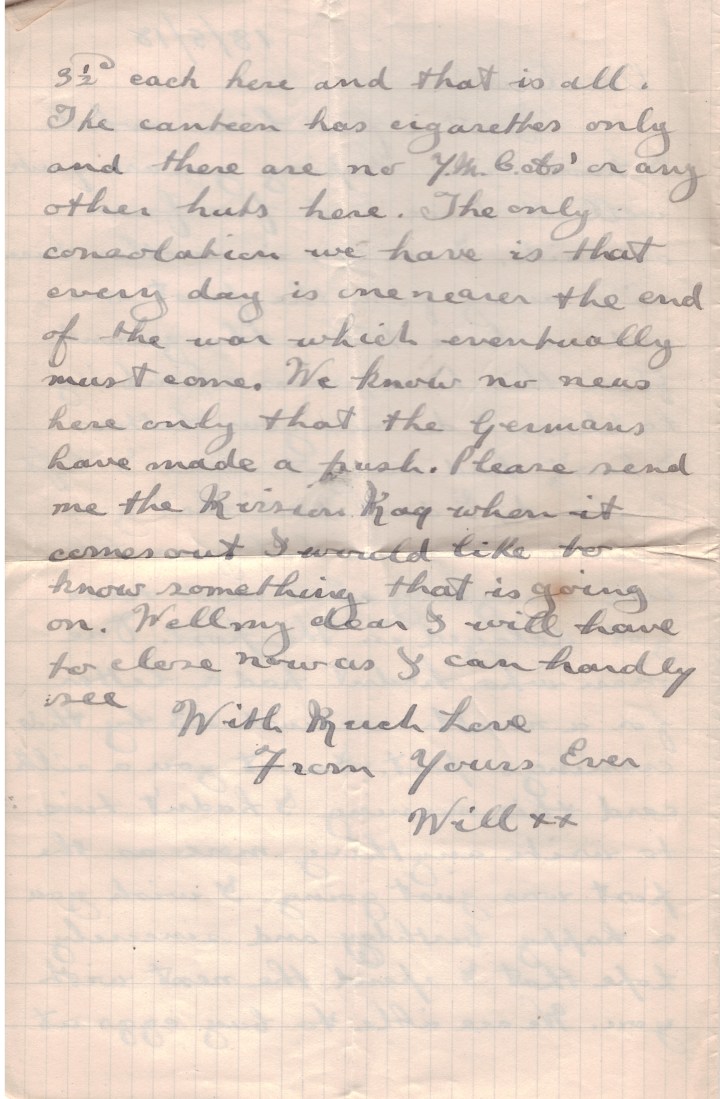 3½ᵈ each here and that is all.
The canteen has cigarettes only
and there are no Y.M.C.As' or any
other huts here. The only
consolation we have is that
every day is one nearer the end
of the war which eventually
must come. We know no news
here only that the Germans
have made a push. Please send
me the Mission Mag when it
comes out I would like to
know something that is going
on. Well my dear I will have
to close now as I can hardly
see
With Much Love
From Yours Ever
Will xx